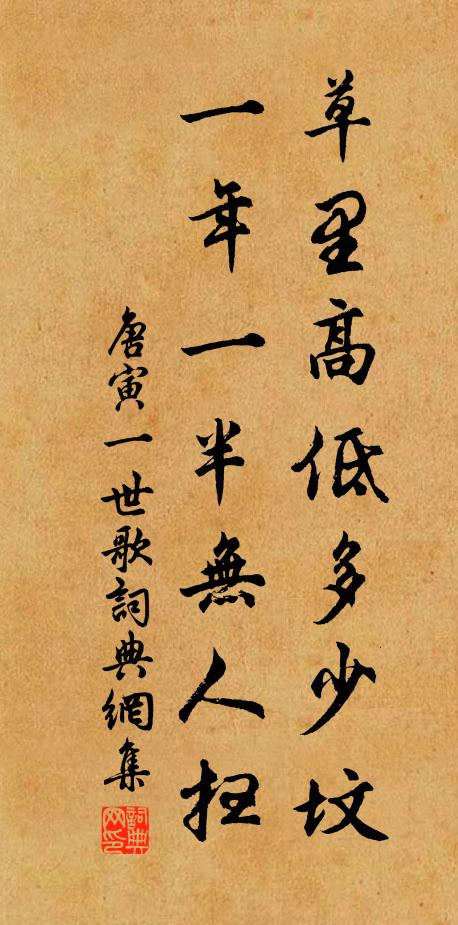 草里高低多少坟
一年一半無人扫
唐寅一世歌詞典網集
詞典
网印